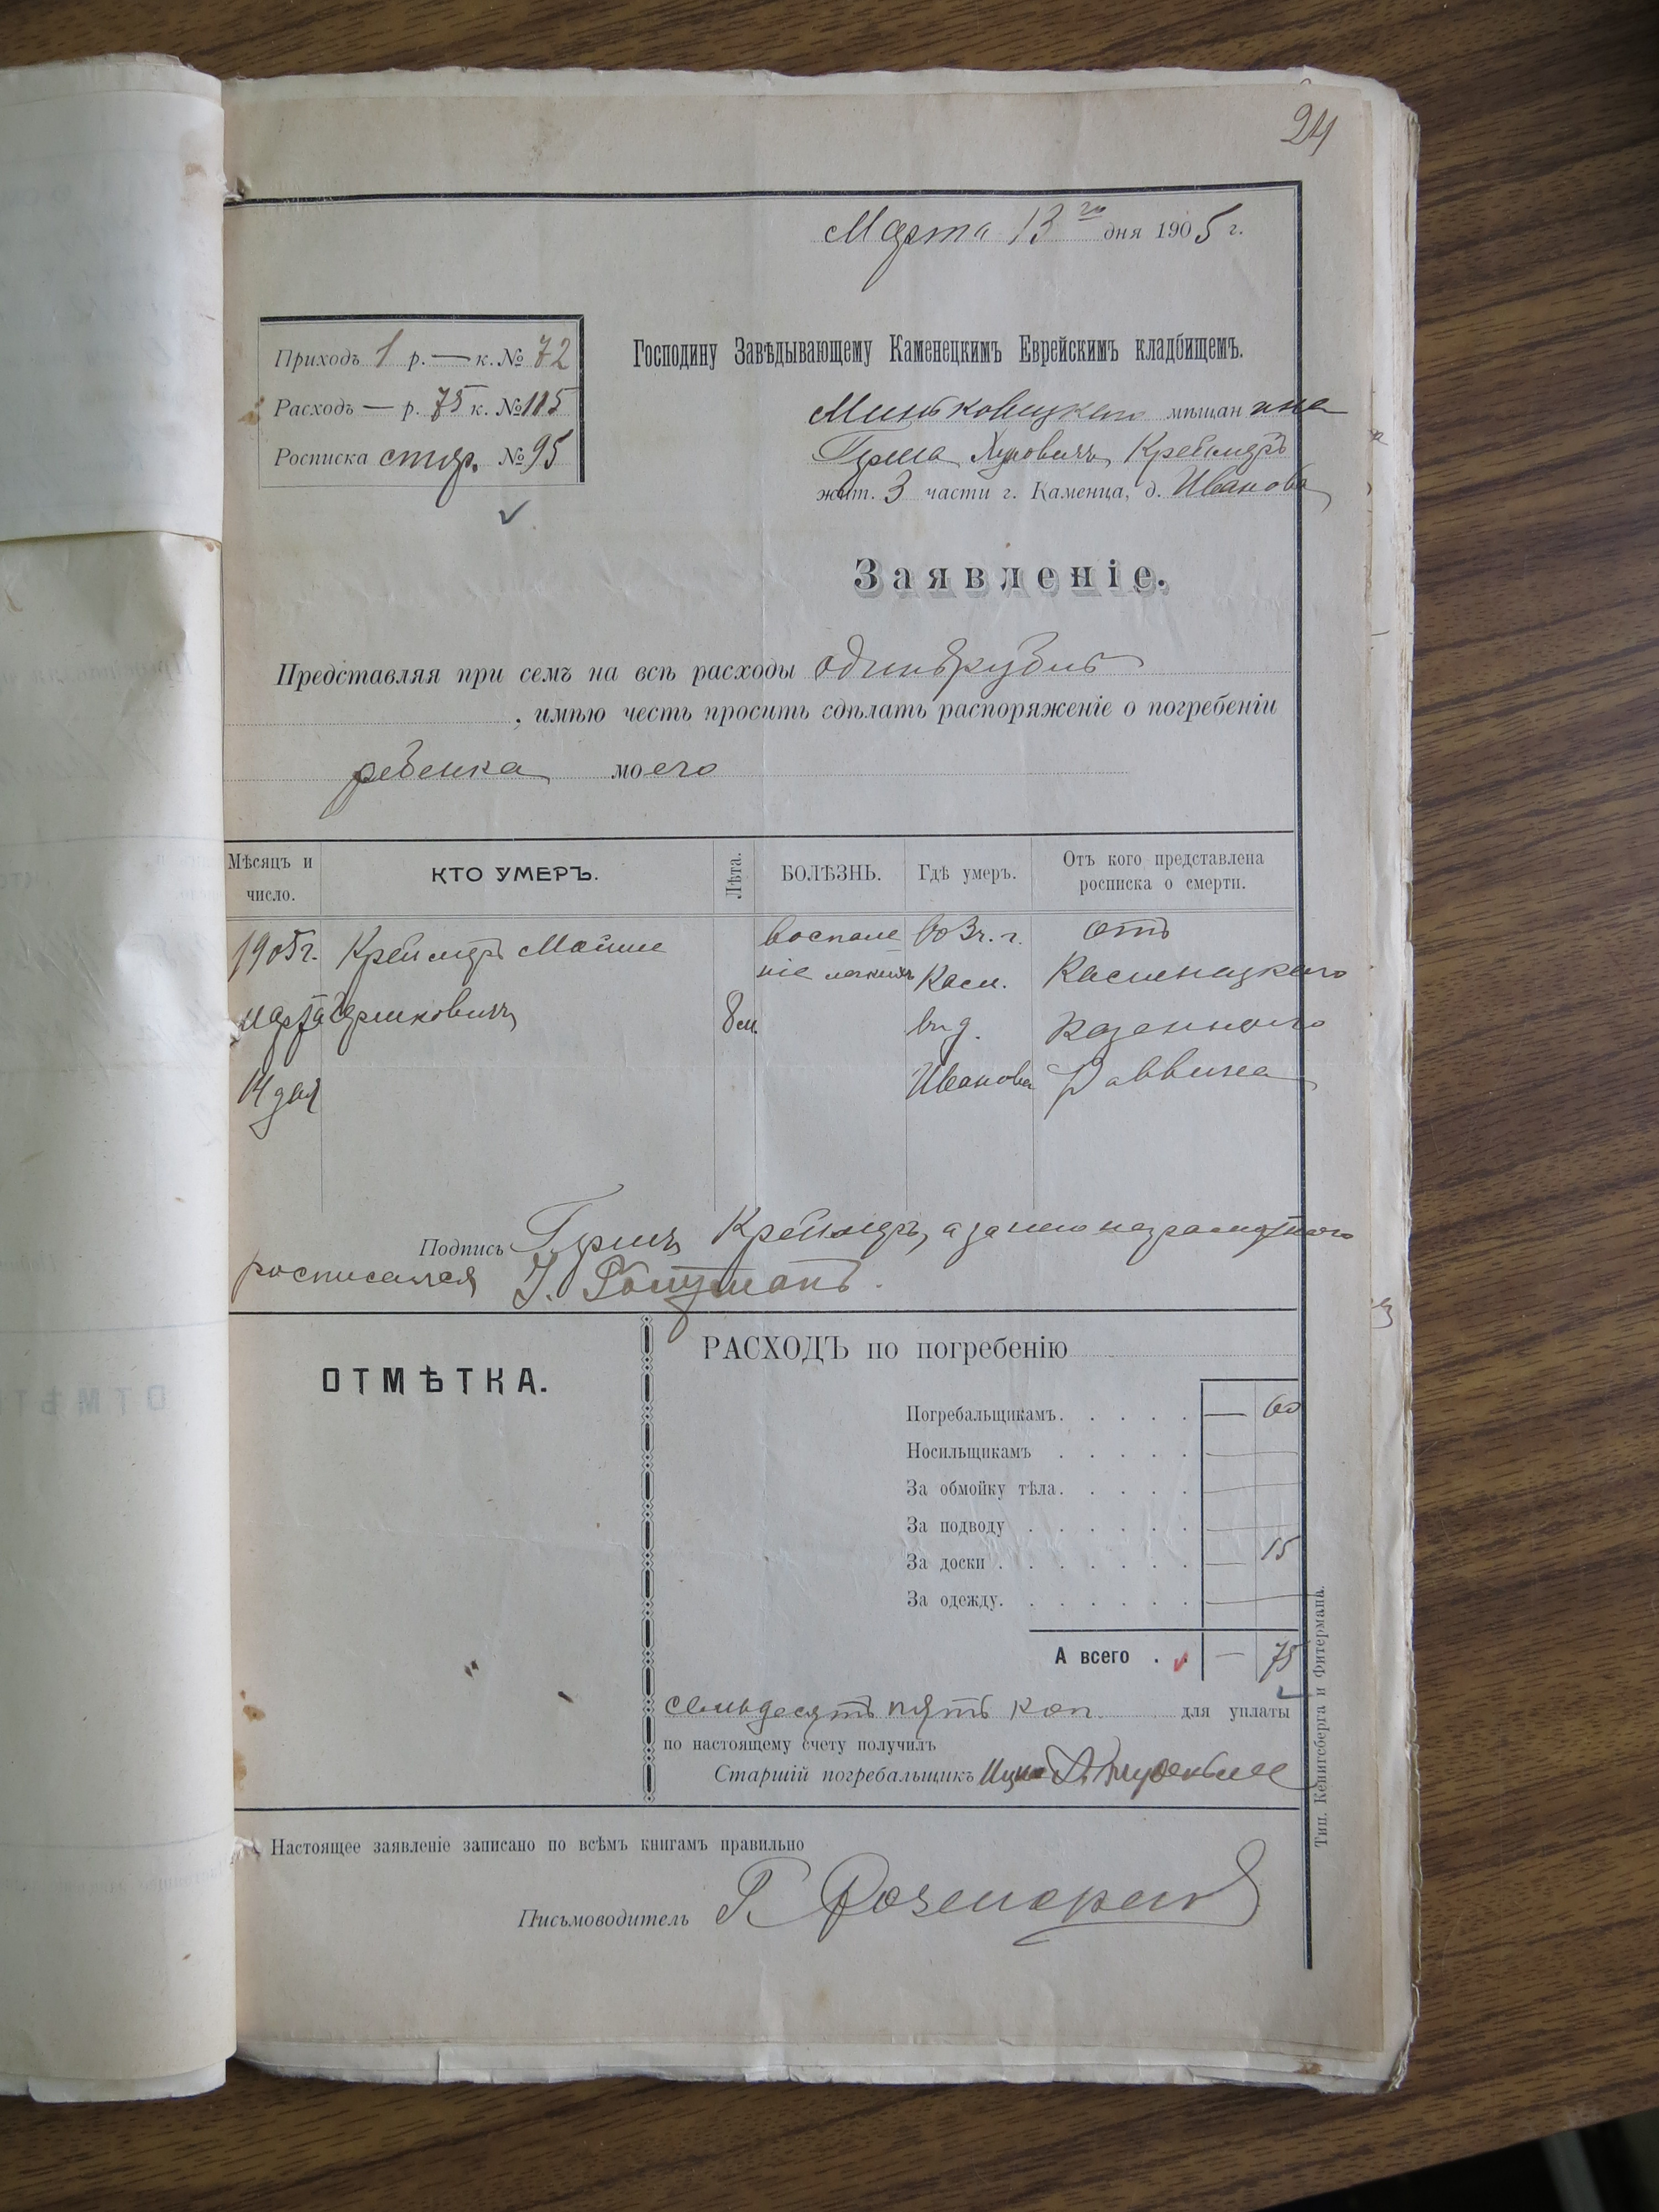 24
Марта 13го дня 1905 г.
Приходъ 1 р. — к. № 72
Расходъ — р. 75 к. № 115
Росписка стор. № 95
Господину Завѣдывающему Каменецкимъ Еврейскимъ кладбищемъ.
Миньковецкаго мѣщанина
Герша Креймеръ
жит. 3 части г. Каменца, д. Иванова
Заявленіе.
Представляя при семъ на всѣ расходы одинъ рубль
, имѣю честь просить сдѣлать распоряженіе о погребеніи
ребенка моего
Мѣсяцъ и число. КТО УМЕРЪ. Лѣта. БОЛѢЗНЬ. Гдѣ умеръ. Отъ кого представлена росписка о смерти.
1905 г. Креймеръ воспале во 3 ч. г. отъ
ніе легкихъ Кам. Каменецкаго
марта Гершковичъ 8 м. в д. казеннаго
дня Иванова Раввина
Подпись Гершъ Креймеръ, а за него неграмотного
росписался
ОТМѢТКА.
РАСХОДЪ по погребенію
Погребальщикамъ. — 60
Носильщикамъ —
За обмойку тѣла. —
За подводу —
За доски — 15
За одежду. —
А всего — 75
семьдесятъ пять коп. для уплаты
по настоящему счету получилъ
Старшій погребальщикъ
Настоящее заявленіе записано по всѣмъ книгамъ правильно
Письмоводитель
Тип. Кенигсберга и Фитермана.